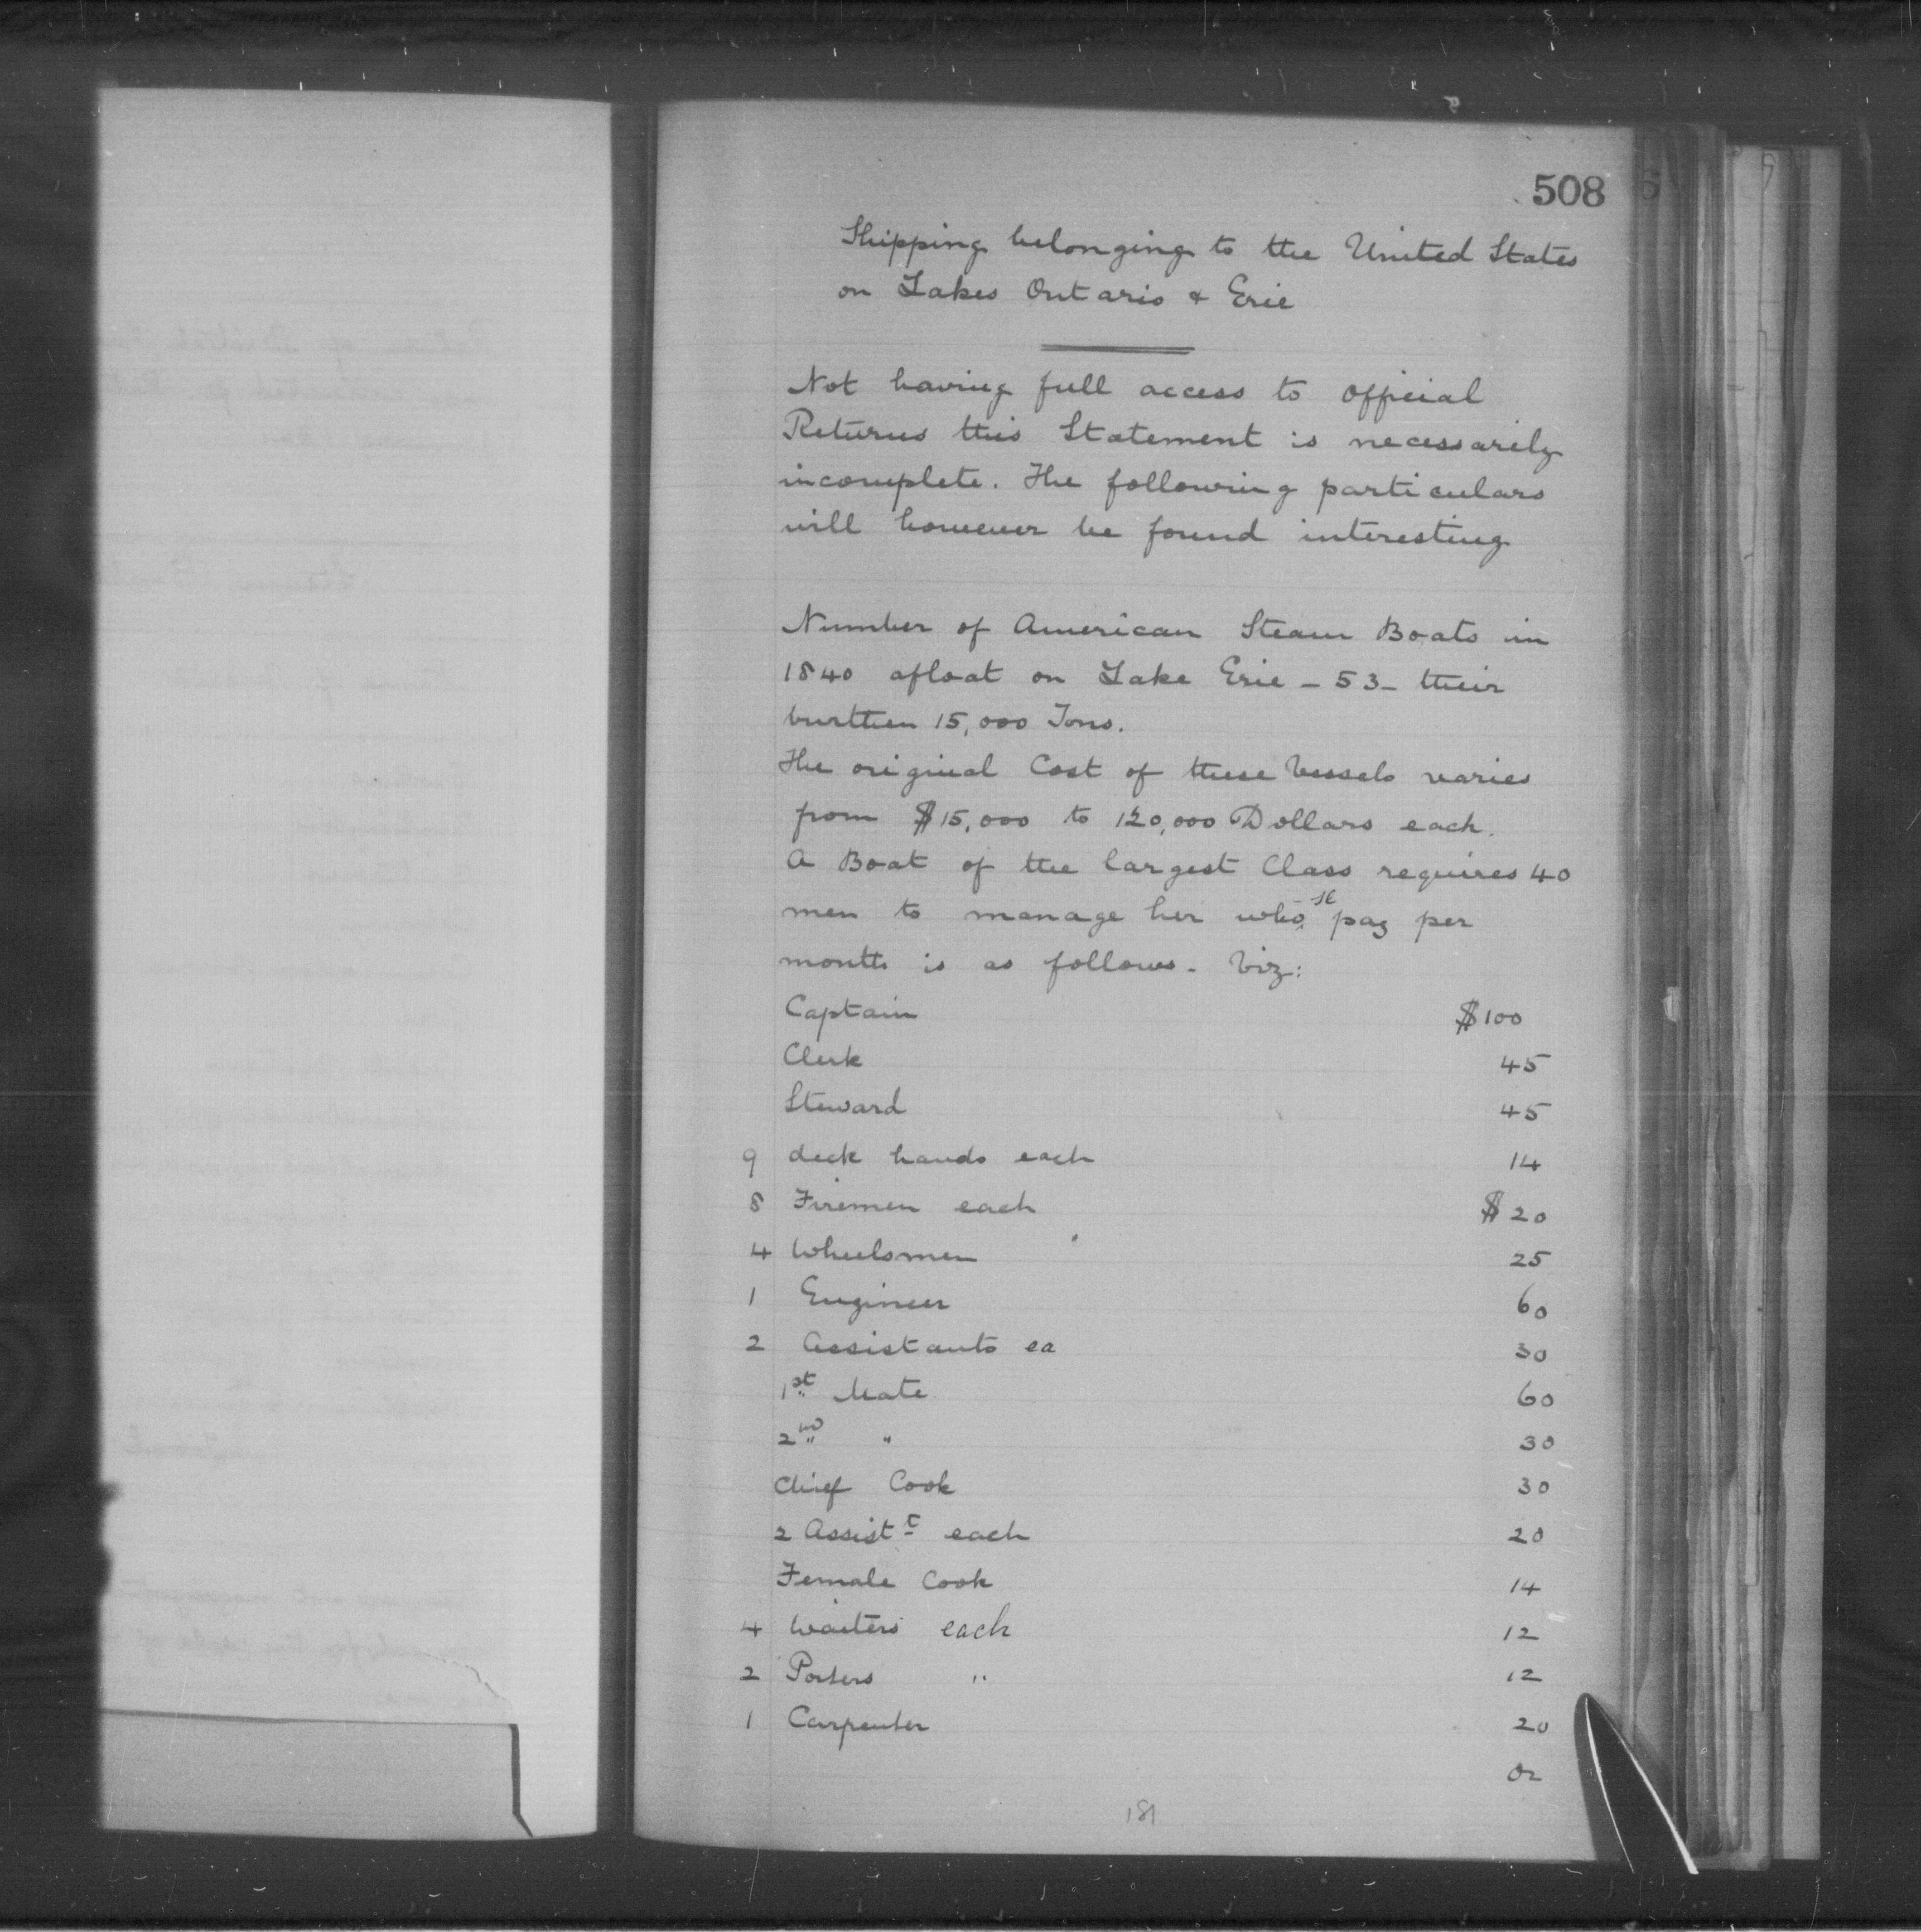 508
Shipping belonging to the United States
on Lakes Ontario & Erie
Not having full access to Official
Returns this Statement is necessarily
incomplete. The following particulars
will however be found interesting
Number of American Steam Boats in
1840 afloat on Lake Erie - 53 - their
burthen 15,000 Tons.
The original Cost of these Vessels varies
from $15,000 to 120,000 Dollars each.
A Boat of the largest Class requires 40
men to manage her whose pay per
month is as follows. Viz:
Captain $100
Clerk 45
Steward 45
9 deck hands each 14
8 Firemen each $20
4 Wheelsmen 25
1 Engineer 60
2 Assistants ea 30
1st Mate 60
2nd " 30
Chief Cook 30
2 Assistt each 20
Female Cook 14
4 Waiters each 12
2 Porters " 12
1 Carpenter 20
Or
181